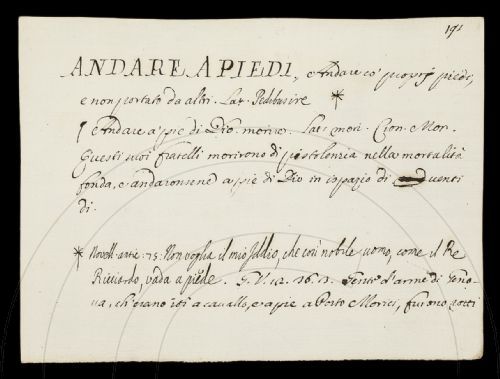 191
ANDARE A PIEDI, e Andare co' proprj piedi,
e non portato da altri. Lat. Pedibus ire *
¶ Andare a piè di Dio. morire. Lat. mori. Cron. Mor.
Questi suoi fratelli morirono di pistolenzia nella mortalità
fonda, e andaronsene a piè di Dio in ispazio di venti
dì.
* Novell. antic. 75. Non voglia il mio Iddio, che così nobile uomo, come il Re
Ricciardo, vada a piede. G. V. 12. 26. 3. Gente d'arme di Geno-
va, ch'erano iti a cavallo, e a piè a Porto Morici, furono rotti